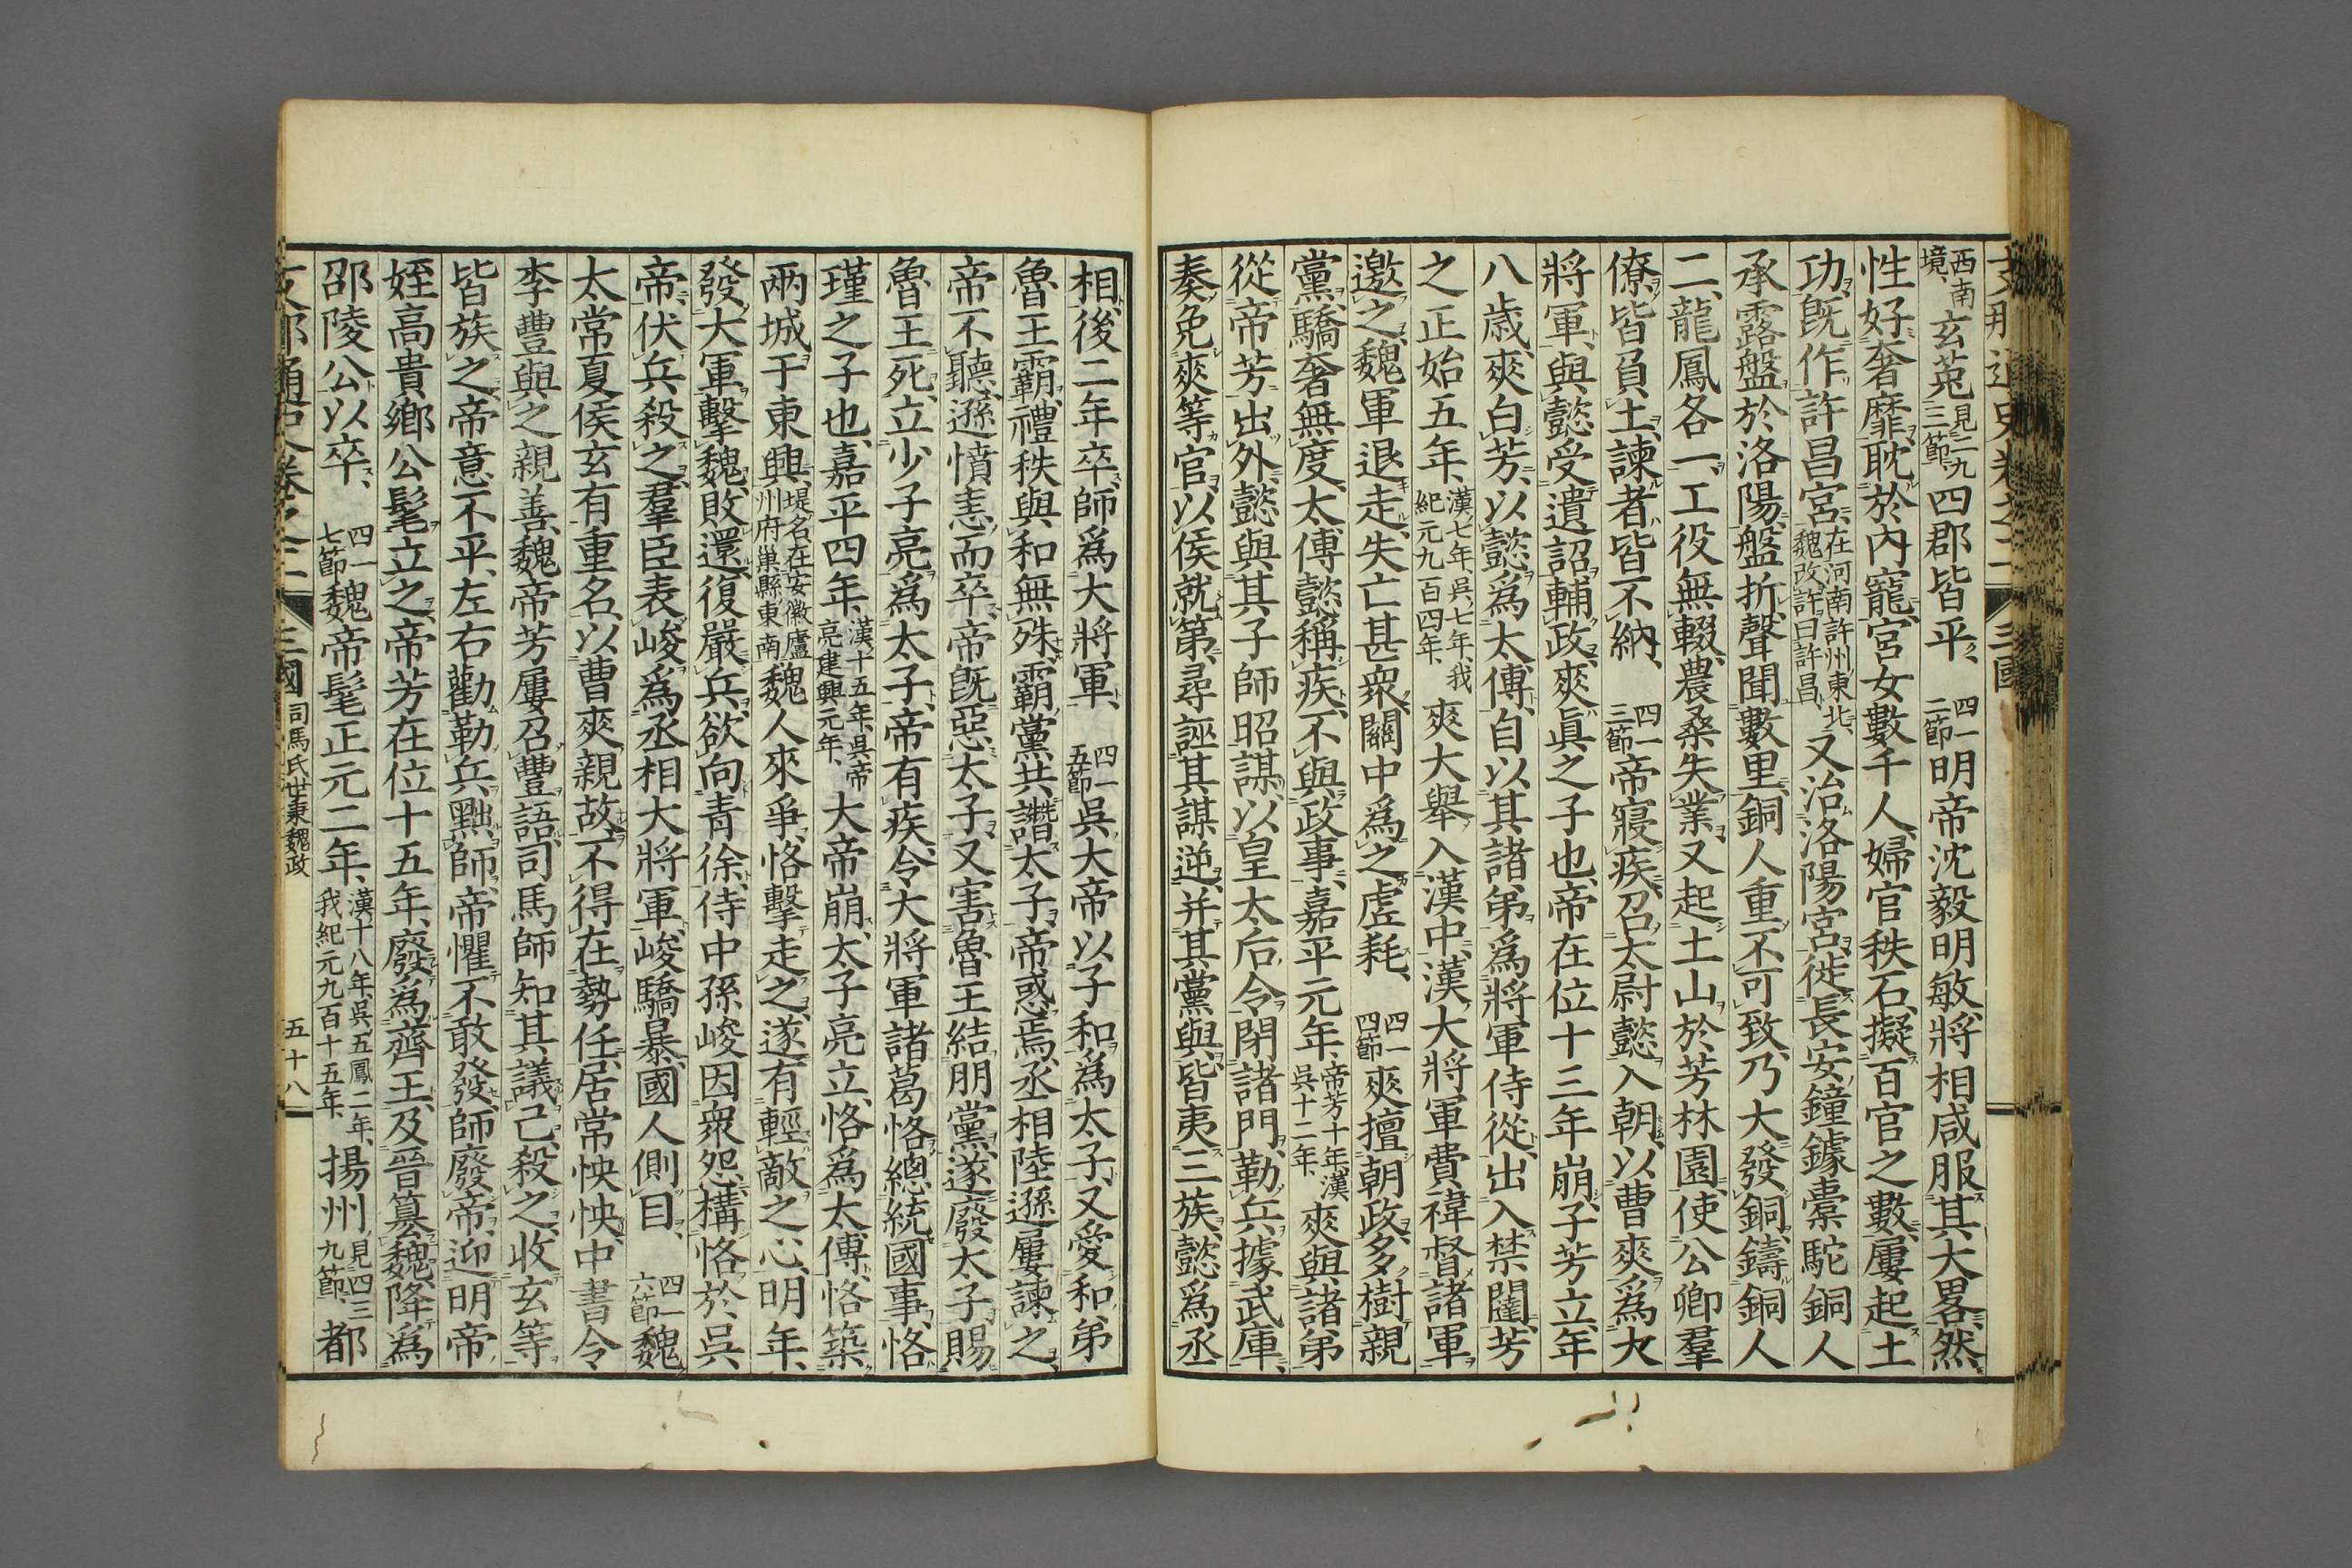 西南境、玄菟見二九三節、四郡皆平、四一二節明帝沈毅明敏、將相咸服其大畧、然
性好奢靡、耽於內寵、宮女數千人、婦官秩石、擬百官之數、屢起土
功、旣作許昌宮、在河南許州東北、魏改許曰許昌、又治洛陽宮、徙長安鐘鐻橐駝銅人
承露盤於洛陽、盤折、聲聞數里、銅人重、不可致、乃大發銅、鑄銅人
二、龍鳳各一、工役無輟、農桑失業、又起土山於芳林園、使公卿羣
僚皆負土、諫者皆不納、四一三節帝寢疾、召太尉懿入朝、以曹爽爲大
將軍、與懿受遺詔輔政、爽眞之子也、帝在位十三年崩、子芳立、年
八歲、爽白芳、以懿爲太傅、自以其諸弟、爲將軍侍從、出入禁闥、芳
之正始五年、漢七年、吳七年、我紀元九百四年、爽大舉入漢中、漢大將軍費禕督諸軍
邀之、魏軍退走、失亡甚衆、關中爲之虛耗、四一四節爽擅朝政、多樹親
黨、驕奢無度、太傅懿稱疾、不與政事、嘉平元年、帝芳十年、漢吳十二年、爽與諸弟
從帝芳出外、懿與其子師昭謀、以皇太后令閉諸門、勒兵據武庫、
奏免爽等官、以侯就第、尋誣其謀逆、并其黨與、皆夷三族、懿爲丞
相、後二年卒、師爲大將軍、四一五節吳大帝以子和爲太子、又愛和弟
魯王霸、禮秩與和無殊、霸黨共譖太子、帝惑焉、丞相陸遜屢諫之、
帝不聽、遜憤恚而卒、帝旣惡太子、又害魯王結朋黨、遂廢太子、賜
魯王死、立少子亮爲太子、帝有疾、令大將軍諸葛恪總統國事、恪
瑾之子也、嘉平四年、漢十五年、吳帝亮建興元年、大帝崩、太子亮立、恪爲太傅、恪築
兩城于東興、堤名、在安徽廬州府巢縣東南魏人來爭、恪擊走之、遂有輕敵之心、明年、
發大軍擊魏、敗還、復嚴兵、欲向青徐、侍中孫峻因衆怨、構恪於吳
帝、伏兵殺之、羣臣表峻爲丞相大將軍、峻驕暴、國人側目、四一六節魏
太常夏侯玄有重名、以曹爽親故、不得在勢任、居常怏怏、中書令
李豐與之親善、魏帝芳屢召豐語、司馬師知其議己、殺之、收玄等
皆族之、帝意不平、左右勸勒兵黜師、帝懼不敢發、師廢帝、迎明帝
姪高貴鄉公髦立之、帝芳在位十五年、廢爲齊王、及晉篡魏、降爲
邵陵公、以卒、四一七節魏帝髦正元二年、漢十八年、吳五鳳二年、我紀元九百十五年、揚州見四三九節、都
三國 司馬氏世秉魏政 五十八